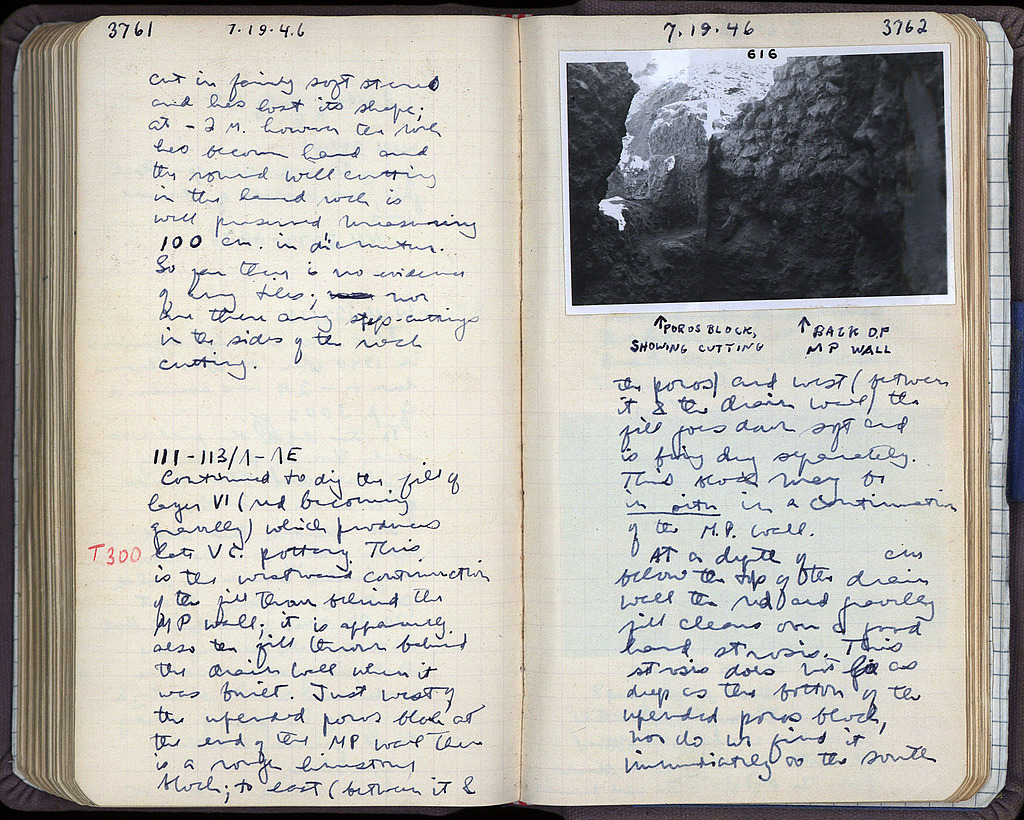 3761
7.19.46
cut in fairly soft stereo
and has lost its shape;
at -2 M. however the rock
has become hard and
the round well cutting
in the hard rock is
well preserved measuring
100 cm. in diameter.
So far there is no evidence
of any tiles; nor
are there any step-cuttings
in the sides of the rock
cutting.
111-113/Λ-ΛE
Continued to dig the fill of
layer VI (red becoming
gravelly) which produces
T300
late V c. pottery. This
is the westward continuation
of the fill thrown behind the
MP wall; it is apparently
also the fill thrown behind
the drain wall when it
was built. Just west of
the upended poros block at
the end of the MP wall there
is a rough limestone
block; to east (between it &
7.19.46
3762
616
↑POROS BLOCK,
SHOWING CUTTING
↑BACK OF
MP WALL
the poros) and west (between
it & the drain wall) the
fill goes down soft and
is being dug separately.
This block may be
in situ in a continuation
of the M.P. wall.
At a depth of cm
below the top of the drain
wall the red and gravelly
fill cleans over a good
hard strosis. This
strosis does not go as
deep as the bottom of the
upended poros block,
nor do we find it
immediately to the south